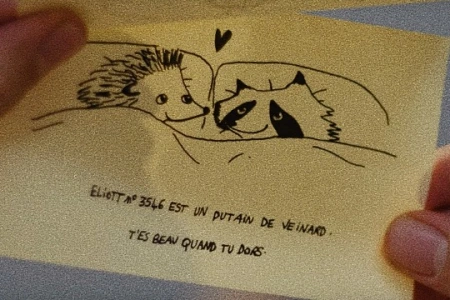 ELIOTT n° 3546 EST UN PUTAIN DE VEINARD.
T'ES BEAU QUAND TU DORS.